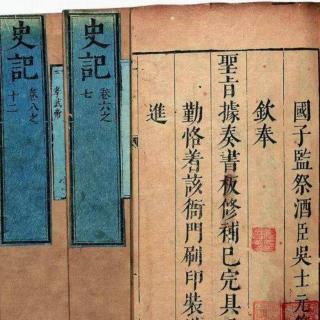 國子監祭酒臣吳士元
欽奉
聖旨據奏書板修補已完具
勤恪着該衙門刷印裝
進
史記
卷六之
七
史記
卷八之
十二